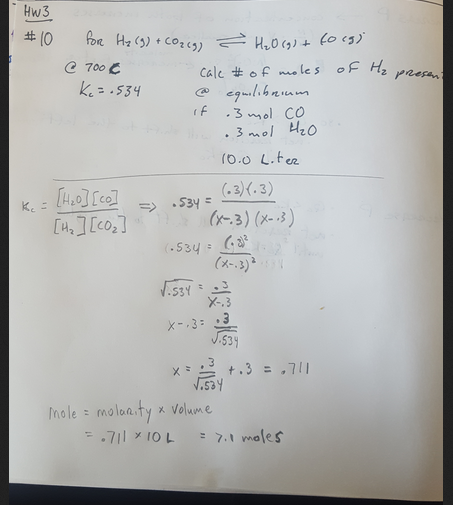 HW3
#10 for H₂(g) + CO₂(g) ⇌ H₂O(g) + CO(g)
@ 700C calc # of moles of H₂ present
Kc = .534 @ equilibrium
if .3 mol CO
.3 mol H₂O
10.0 Liter
Kc = [H₂O][CO] / [H₂][CO₂] ⇒ .534 = (.3)(.3) / (x-.3)(x-.3)
.534 = (.3)² / (x-.3)²
√.534 = .3 / x-.3
x-.3 = .3 / √.534
x = .3 / √.534 + .3 = .711
mole = molarity x volume
= .711 x 10 L = 7.1 moles